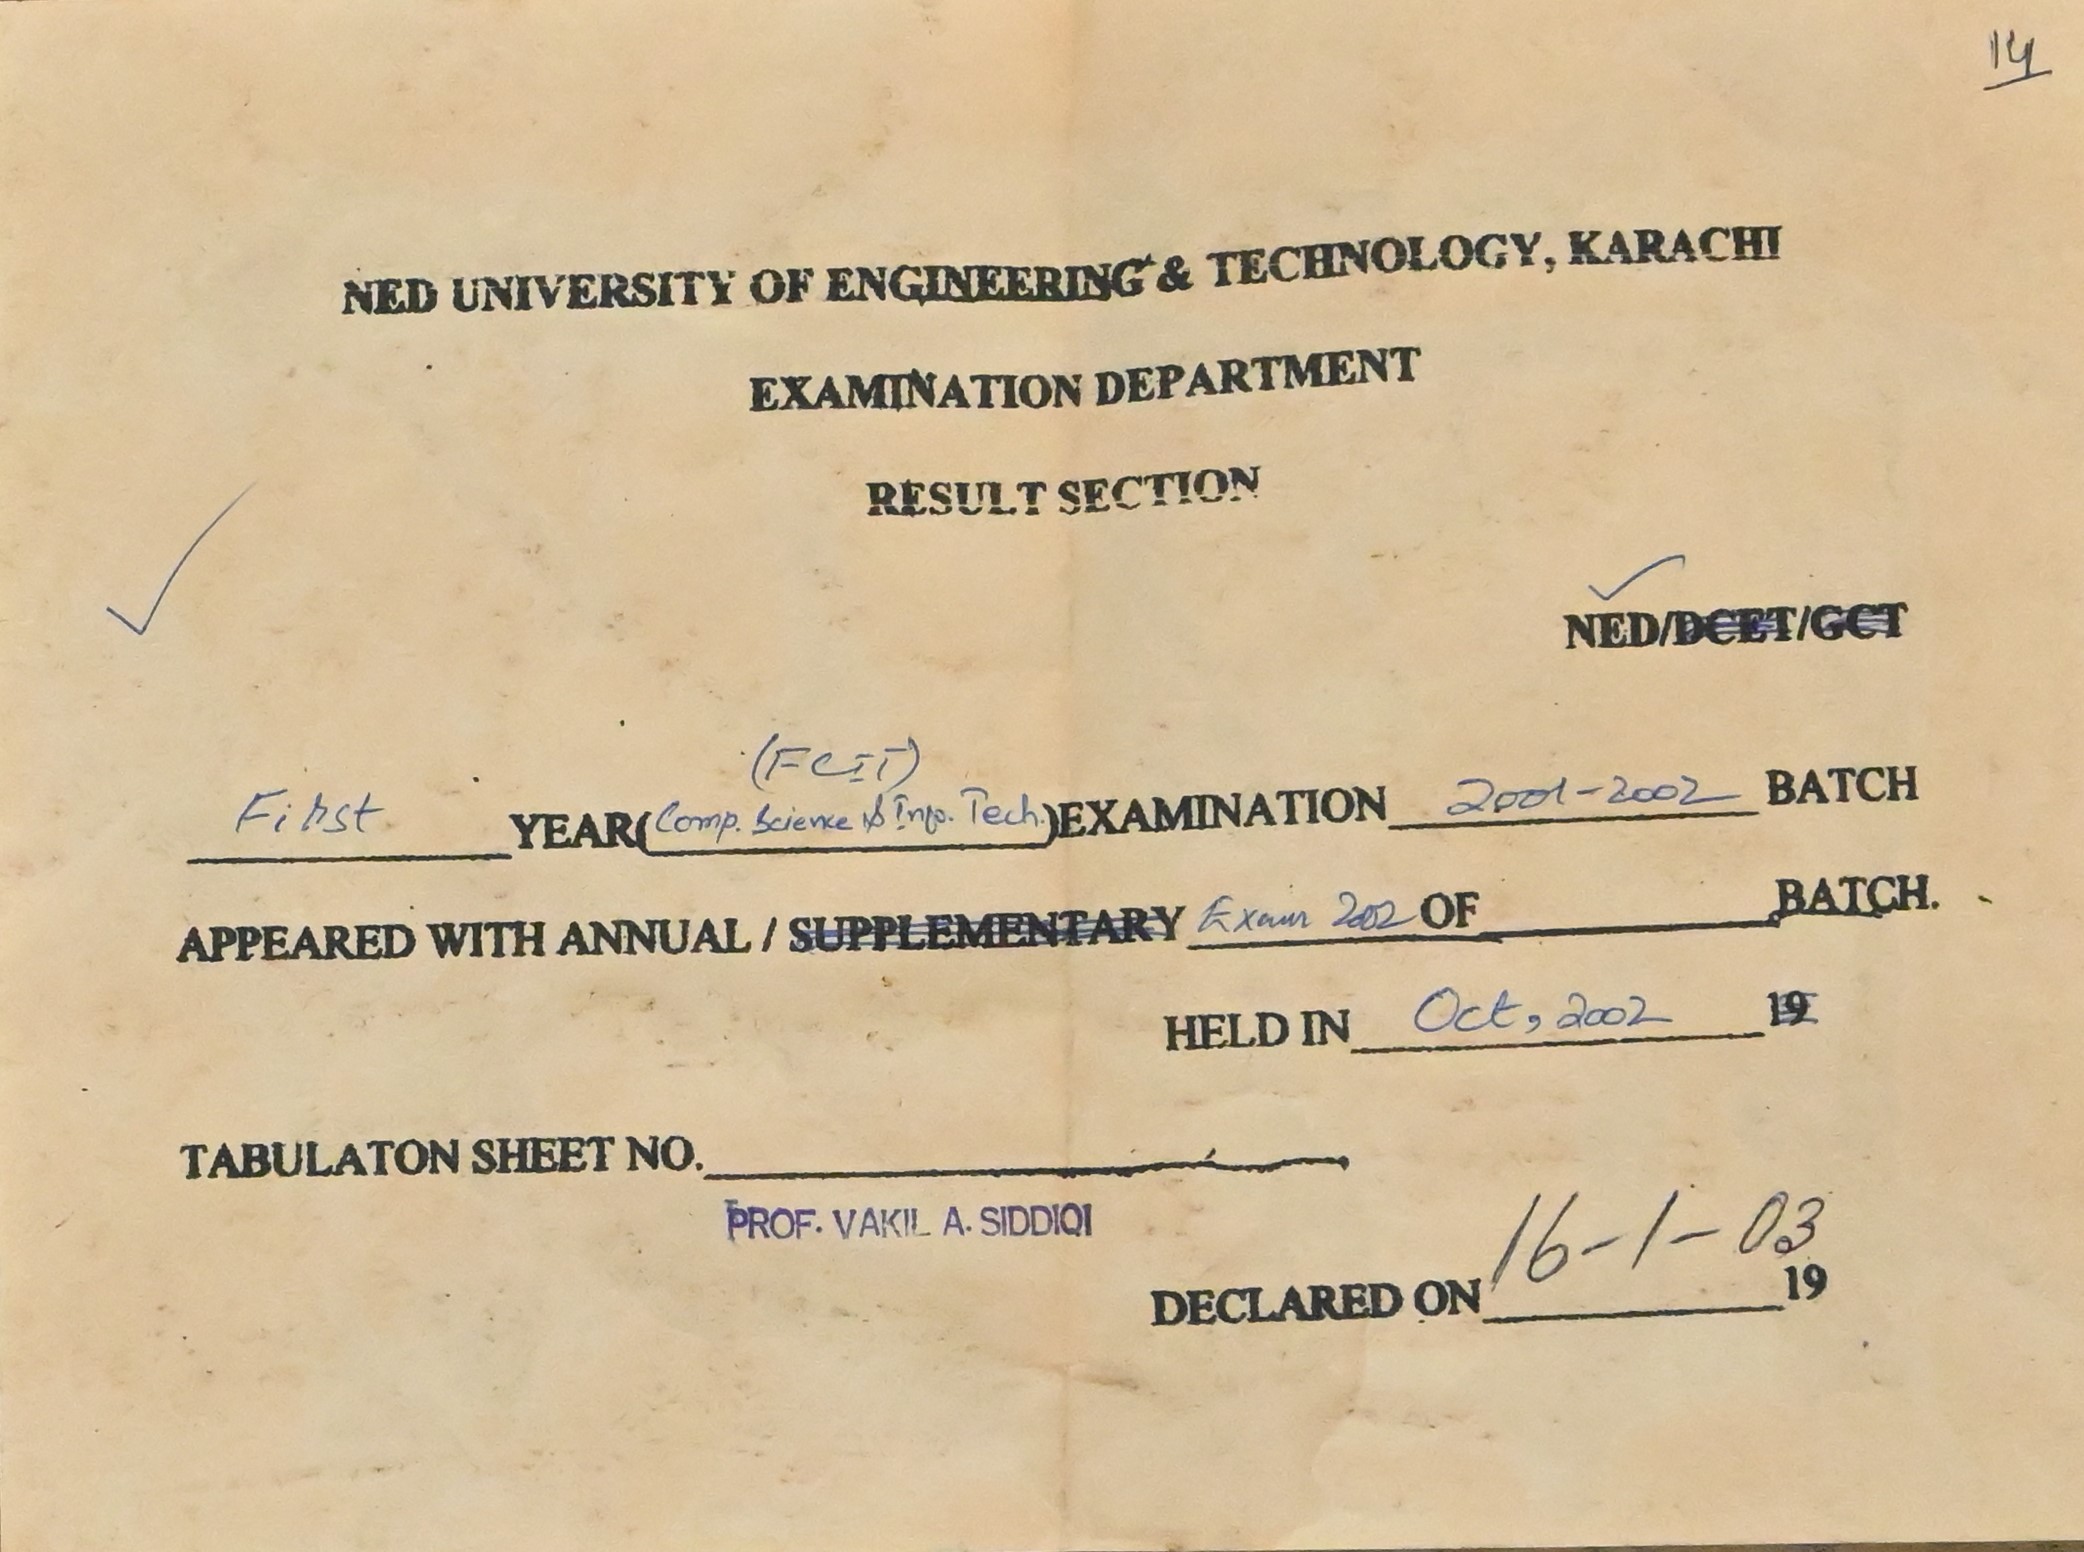 14
NED UNIVERSITY OF ENGINEERING & TECHNOLOGY, KARACHI
EXAMINATION DEPARTMENT
RESULT SECTION
NED/DCET/GCT
(FCIT)
First YEAR(Comp. Science & Info. Tech.)EXAMINATION 2001-2002 BATCH
APPEARED WITH ANNUAL / SUPPLEMENTARY Exam 2002 OF BATCH.
HELD IN Oct, 2002 19
TABULATON SHEET NO.
PROF. VAKIL A. SIDDIQI
DECLARED ON 16-1-03 19